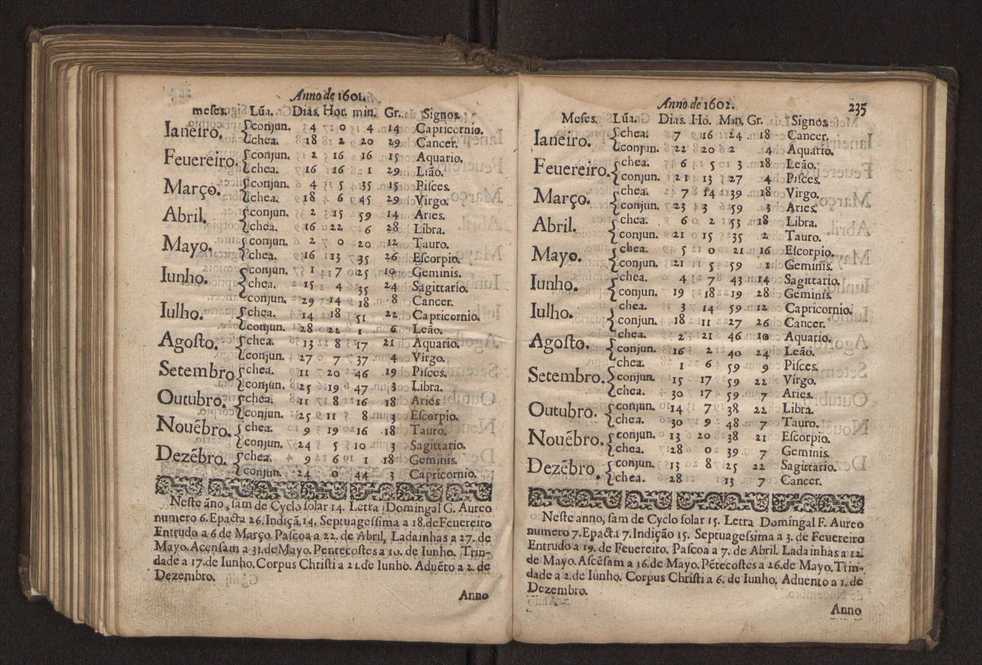 Anno de 1601.
meses. Lũa. Dias. Hor. min. Gr. Signos
Ianeiro. conjun. 4 0 4 14 Capricornio.
chea. 18 2 20 29 Cancer.
Feuereiro. conjun. 2 16 16 15 Aquario.
chea. 16 16 1 29 Lião.
Março. conjun. 4 5 35 15 Pisces.
chea. 18 6 45 29 Virgo.
Abril. conjun. 2 15 59 14 Aries.
chea. 16 22 6 28 Libra.
Mayo. conjun. 2 7 0 20 12 Tauro.
chea. 16 13 35 26 Escorpio.
Iunho. conjun. 1 7 25 10 Geminis.
chea. 15 4 35 24 Sagittario.
conjun. 29 14 18 8 Cancer.
Iulho. chea. 14 18 51 22 Capricornio.
conjun. 28 22 1 6 Leão.
Agosto. chea. 13 22 8 17 21 Aquario.
conjun. 27 0 7 37 4 Virgo.
Setembro chea. 11 20 46 19 Pisces.
conjun. 25 19 47 3 Libra.
Outubro. chea. 11 8 16 18 Aries
conjun. 25 11 8 3 Escorpio.
Nouẽbro. chea. 9 19 16 18 Tauro.
conjun. 24 5 10 3 Sagittario.
Dezẽbro. chea. 9 6 1 18 Geminis.
conjun. 24 0 44 3 Capricornio.
Neste ãno, sam de Cyclo solar 14. Letra Domingal G. Aureo
numero 6. Epacta 26. Indiçã. 14. Septuagessima a 18. de Feuereiro
Entrudo a 6 de Março. Pascoa a 22. de Abril, Ladainhas a 27. de
Mayo. Acensam a 31. de Mayo. Pentecostes a 10. de Iunho. Trin-
dade a 17. de Iunho. Corpus Christi a 21. de Iunho. Aduẽto a 2. de
Dezembro.
Anno
Anno de 1602. 235
Meses. Lũa. Dias. Ho. Min. Gr. Signos
Ianeiro. chea. 7 16 24 18 Cancer.
conjun. 22 20 2 4 Aquario.
Feuereiro. chea. 6 5 3 18 Leão.
conjun. 21 13 27 4 Pisces.
Março. chea. 7 14 39 18 Virgo.
conjun. 23 3 59 3 Aries.
Abril. chea. 6 2 53 18 Libra.
conjun. 21 15 35 2 Tauro.
Mayo. chea. 5 0 21 16 Escorpio.
conjun. 21 5 59 1 Geminis.
Iunho. chea. 4 7 43 14 Sagittario.
conjun. 19 18 19 28 Geminis.
Iulho. chea. 3 14 59 12 Capricornio.
conjun. 18 11 27 26 Cancer.
Agosto. chea. 2 21 46 10 Aquario.
conjun. 16 2 40 24 Leão.
chea. 1 6 59 9 Pisces.
Setembro. conjun. 15 17 59 22 Virgo.
chea. 30 17 59 7 Aries.
Outubro. conjun. 14 7 38 22 Libra.
chea. 30 9 48 7 Tauro.
Nouẽbro. conjun. 13 20 38 21 Escorpio.
chea. 28 0 39 7 Geminis.
Dezẽbro. conjun. 13 8 25 22 Sagittario.
chea. 28 13 7 Cancer.
Neste anno, sam de Cyclo solar 15. Letra Domingal F. Aureo
numero 7. Epacta 7. Indição 15. Septuagessima a 3. de Feuereiro
Entrudo a 19. de Feuereiro. Pascoa a 7. de Abril. Ladainhas a 12
de Mayo. Ascẽsam a 16. de Mayo. Pẽtecostes a 26. de Mayo. Trin-
dade a 2. de Iunho. Corpus Christi a 6. de Iunho. Aduento a 1. de
Dezembro.
Anno